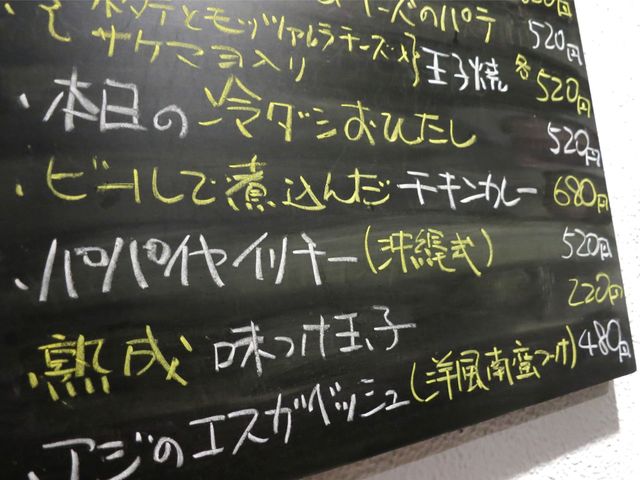 ーズのパテ 520円
ポテトとモッツァレラチーズ
サケマヨ入り 玉子焼 各520円
・本日の冷ダシおひたし 520円
・ビールで煮込んだチキンカレー 680円
・パパイヤイリチー(沖縄式) 520円
・熟成 味つけ玉子 220円
・アジのエスカベッシュ(洋風南蛮つけ) 480円